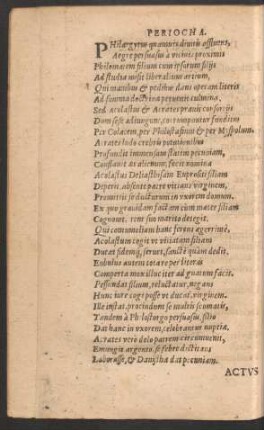 PERIOCHA.
PHilargyrus quamuis diuitijs affluens,
Aegre persuasus à vicino proximo
Philomatem filium cum ipsorum filijs
Ad studia misit liberalium artium,
Qui manibus & peditus dans operam literis
Ad summa doctrinæ peruenit culmina.
Sed Acolastus & Acrates prauis consortijs
Dum sese adiungunt, corrumpuntur funditus
Per Colacem, per Philostasium & per Mysponum.
Acrates ludo crebris potationibus
Profundit immensam patris pecuniam,
Conflans æs alienum; fœcit nomina
Acolastus Deliastbosam Euprositi filiam
Deperit, absente patre vitians virginem,
Promittit se ducturum in vxorem domum.
Ex quo grauidam factam cum mater filiam
Cognouit, rem suo marito detegit.
Qui contumeliam hanc ferens ægerrimè,
Acolastum cogit vt vitiatam filiam
Ducat fidemq; seruet, sanctè quàm dedit,
Eubulus autem totam per literas
Comperta mox illuc iter ad gnatum facit.
Pessundat filium, reluctatur, negans
Hunc iure cogi posse vt ducat virginem.
Ille instat, prouidum se multis fouentis,
Tandem à Philostorgo persuasus, filio
Dat hanc in vxorem, celebrantur nuptiæ,
Acrates verò dolo patrem circumuenit,
Emungit argento, si febre dictitans
Laborasse, & Danistæ dat pecuniam.
ACTVS